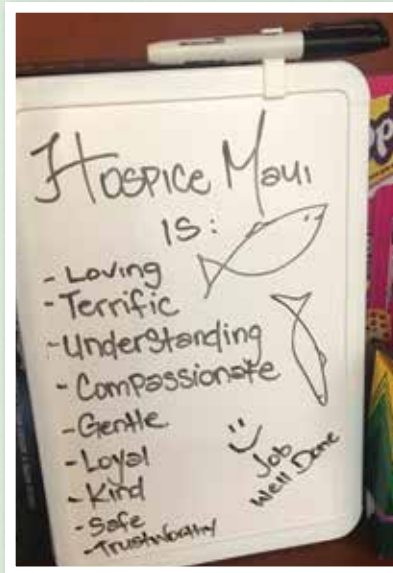 Hospice Maui
is:
- Loving
- Terrific
- Understanding
- Compassionate
- Gentle
- Loyal
- Kind
- Safe
- Trustworthy
Job
Well Done